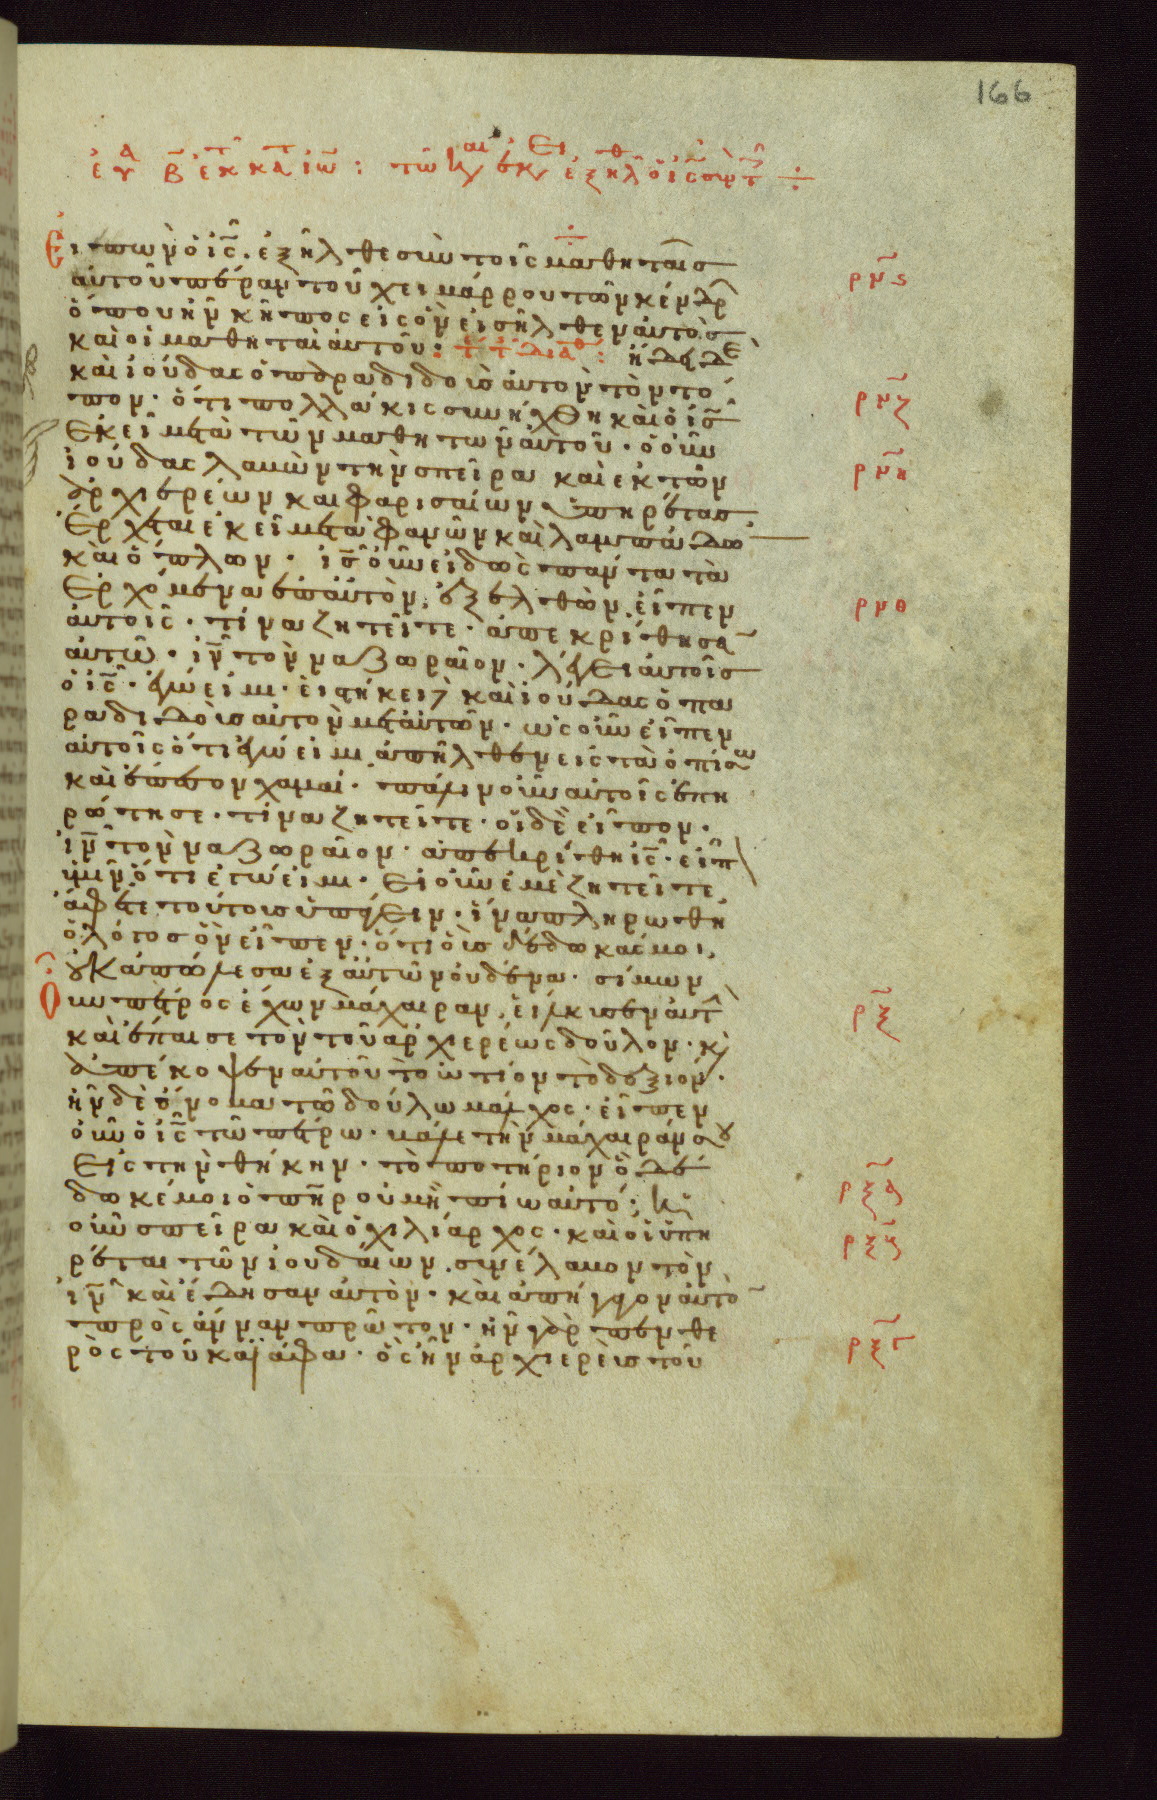 166
εὐα β ἐκ κατὰ ἰω : τῶ καιρῶ ἐκει ἐξηλθ ὁ ἰς σὺν τ
ρμς
Ειπων ὁ ἰς. ἐξῆλθε σὺν τοῖς μαθηταῖς
αὐτοῦ πέραν τοῦ χειμάρρου τῶν κένδρ
ὅπου ἦν κῆπος εἰς ὃν εἰσῆλθεν αὐτὸς
καὶ οἱ μαθηταὶ αὐτοῦ : ἤδει δὲ
καὶ ἰούδας ὁ παραδιδοὺς αὐτὸν τὸν τό
ρμζ
πον· ὅτι πολλάκις συνήχθη καὶ ὁ ἰς
ἐκεῖ μετὰ τῶν μαθητῶν αὐτοῦ· ὁ οὖν
ρμη
ἰούδας λαβὼν τὴν σπεῖρα καὶ ἐκ τῶν
ἀρχιερέων καὶ φαρισαίων ὑπηρέτας,
ἔρχεται ἐκεῖ μετὰ φανῶν καὶ λαμπάδω
καὶ ὅπλων· ἰς οὖν εἰδὼς πάντα τὰ
ἐρχόμενα ἐπ αὐτὸν, ἐξελθὼν εἶπεν
ρμθ
αὐτοῖς· τίνα ζητεῖτε· ἀπεκρίθησα
αὐτῶ· ἰν τὸν ναζωραῖον· λέγει αὐτοῖς
ὁ ἰς· ἐγώ εἰμι· εἱστήκει δὲ καὶ ἰούδας ὁ πα
ραδιδοὺς αὐτὸν μετ αὐτῶν· ὡς οὖν εἶπεν
αὐτοῖς ὅτι ἐγώ εἰμι ἀπῆλθεν εἰς τὰ ὀπίσω
καὶ ἔπεσον χαμαί· πάλιν οὖν αὐτοῖς ἐπη
ρώτησε· τίνα ζητεῖτε· οἱ δὲ εἶπον·
ἰν τὸν ναζωραῖον· ἀπεκρίθη ἰς· εἶπ
ὑμῖν ὅτι ἐγώ εἰμι· εἰ οὖν ἐμὲ ζητεῖτε,
ἄφετε τούτους ὑπάγειν· ἵνα πληρωθῆ
ὁ λόγος ὃν εἶπεν· ὅτι οὓς δέδωκάς μοι,
οὐκ ἀπώλεσα ἐξ αὐτῶν οὐδένα· σίμων
Οὖν πέτρος ἔχων μάχαιραν, εἵλκυσεν αὐτ
ρξ
καὶ ἔπαισε τὸν τοῦ ἀρχιερέως δοῦλον· κ
ἀπέκοψεν αὐτοῦ τὸ ὠτίον τὸ δεξιόν·
ἦν δὲ ὄνομα τῶ δούλω μάλχος· εἶπεν
οὖν ὁ ἰς τῶ πέτρω· βάλε τὴν μάχαιράν σου
εἰς τὴν θήκην· τὸ ποτήριον ὃ δέ
ρξα
δωκέ μοι ὁ πηρ οὐ μὴ πίω αὐτό;
οὖν σπεῖρα καὶ ὁ χιλίαρχος· καὶ οἱ ὑπη
ρξβ
ρέται τῶν ἰουδαίων. συνέλαβον τὸν
ἰν καὶ ἔδησαν αὐτὸν· καὶ ἀπήγαγον αὐτὸ
πρὸς ἄνναν πρῶτον· ἦν γὰρ πενθε
ρξγ
ρὸς τοῦ καϊάφα· ὃς ἦν ἀρχιερεὺς τοῦ